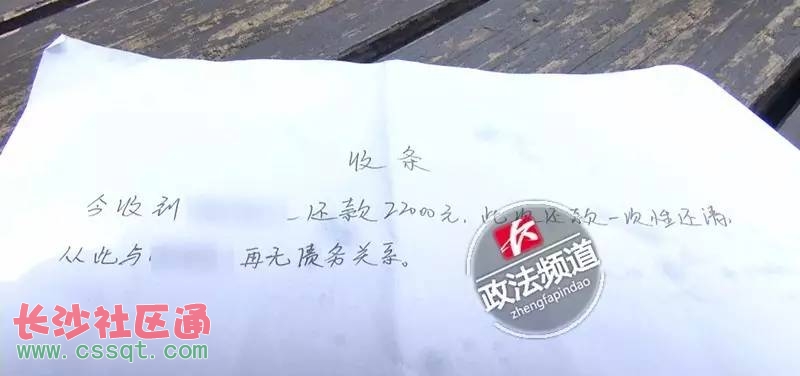 收条
今收到 还款22000元，此次还款一次性还清，
从此与 再无债务关系。
政法频道
zhengfapindao
长沙社区通
www.cssqt.com